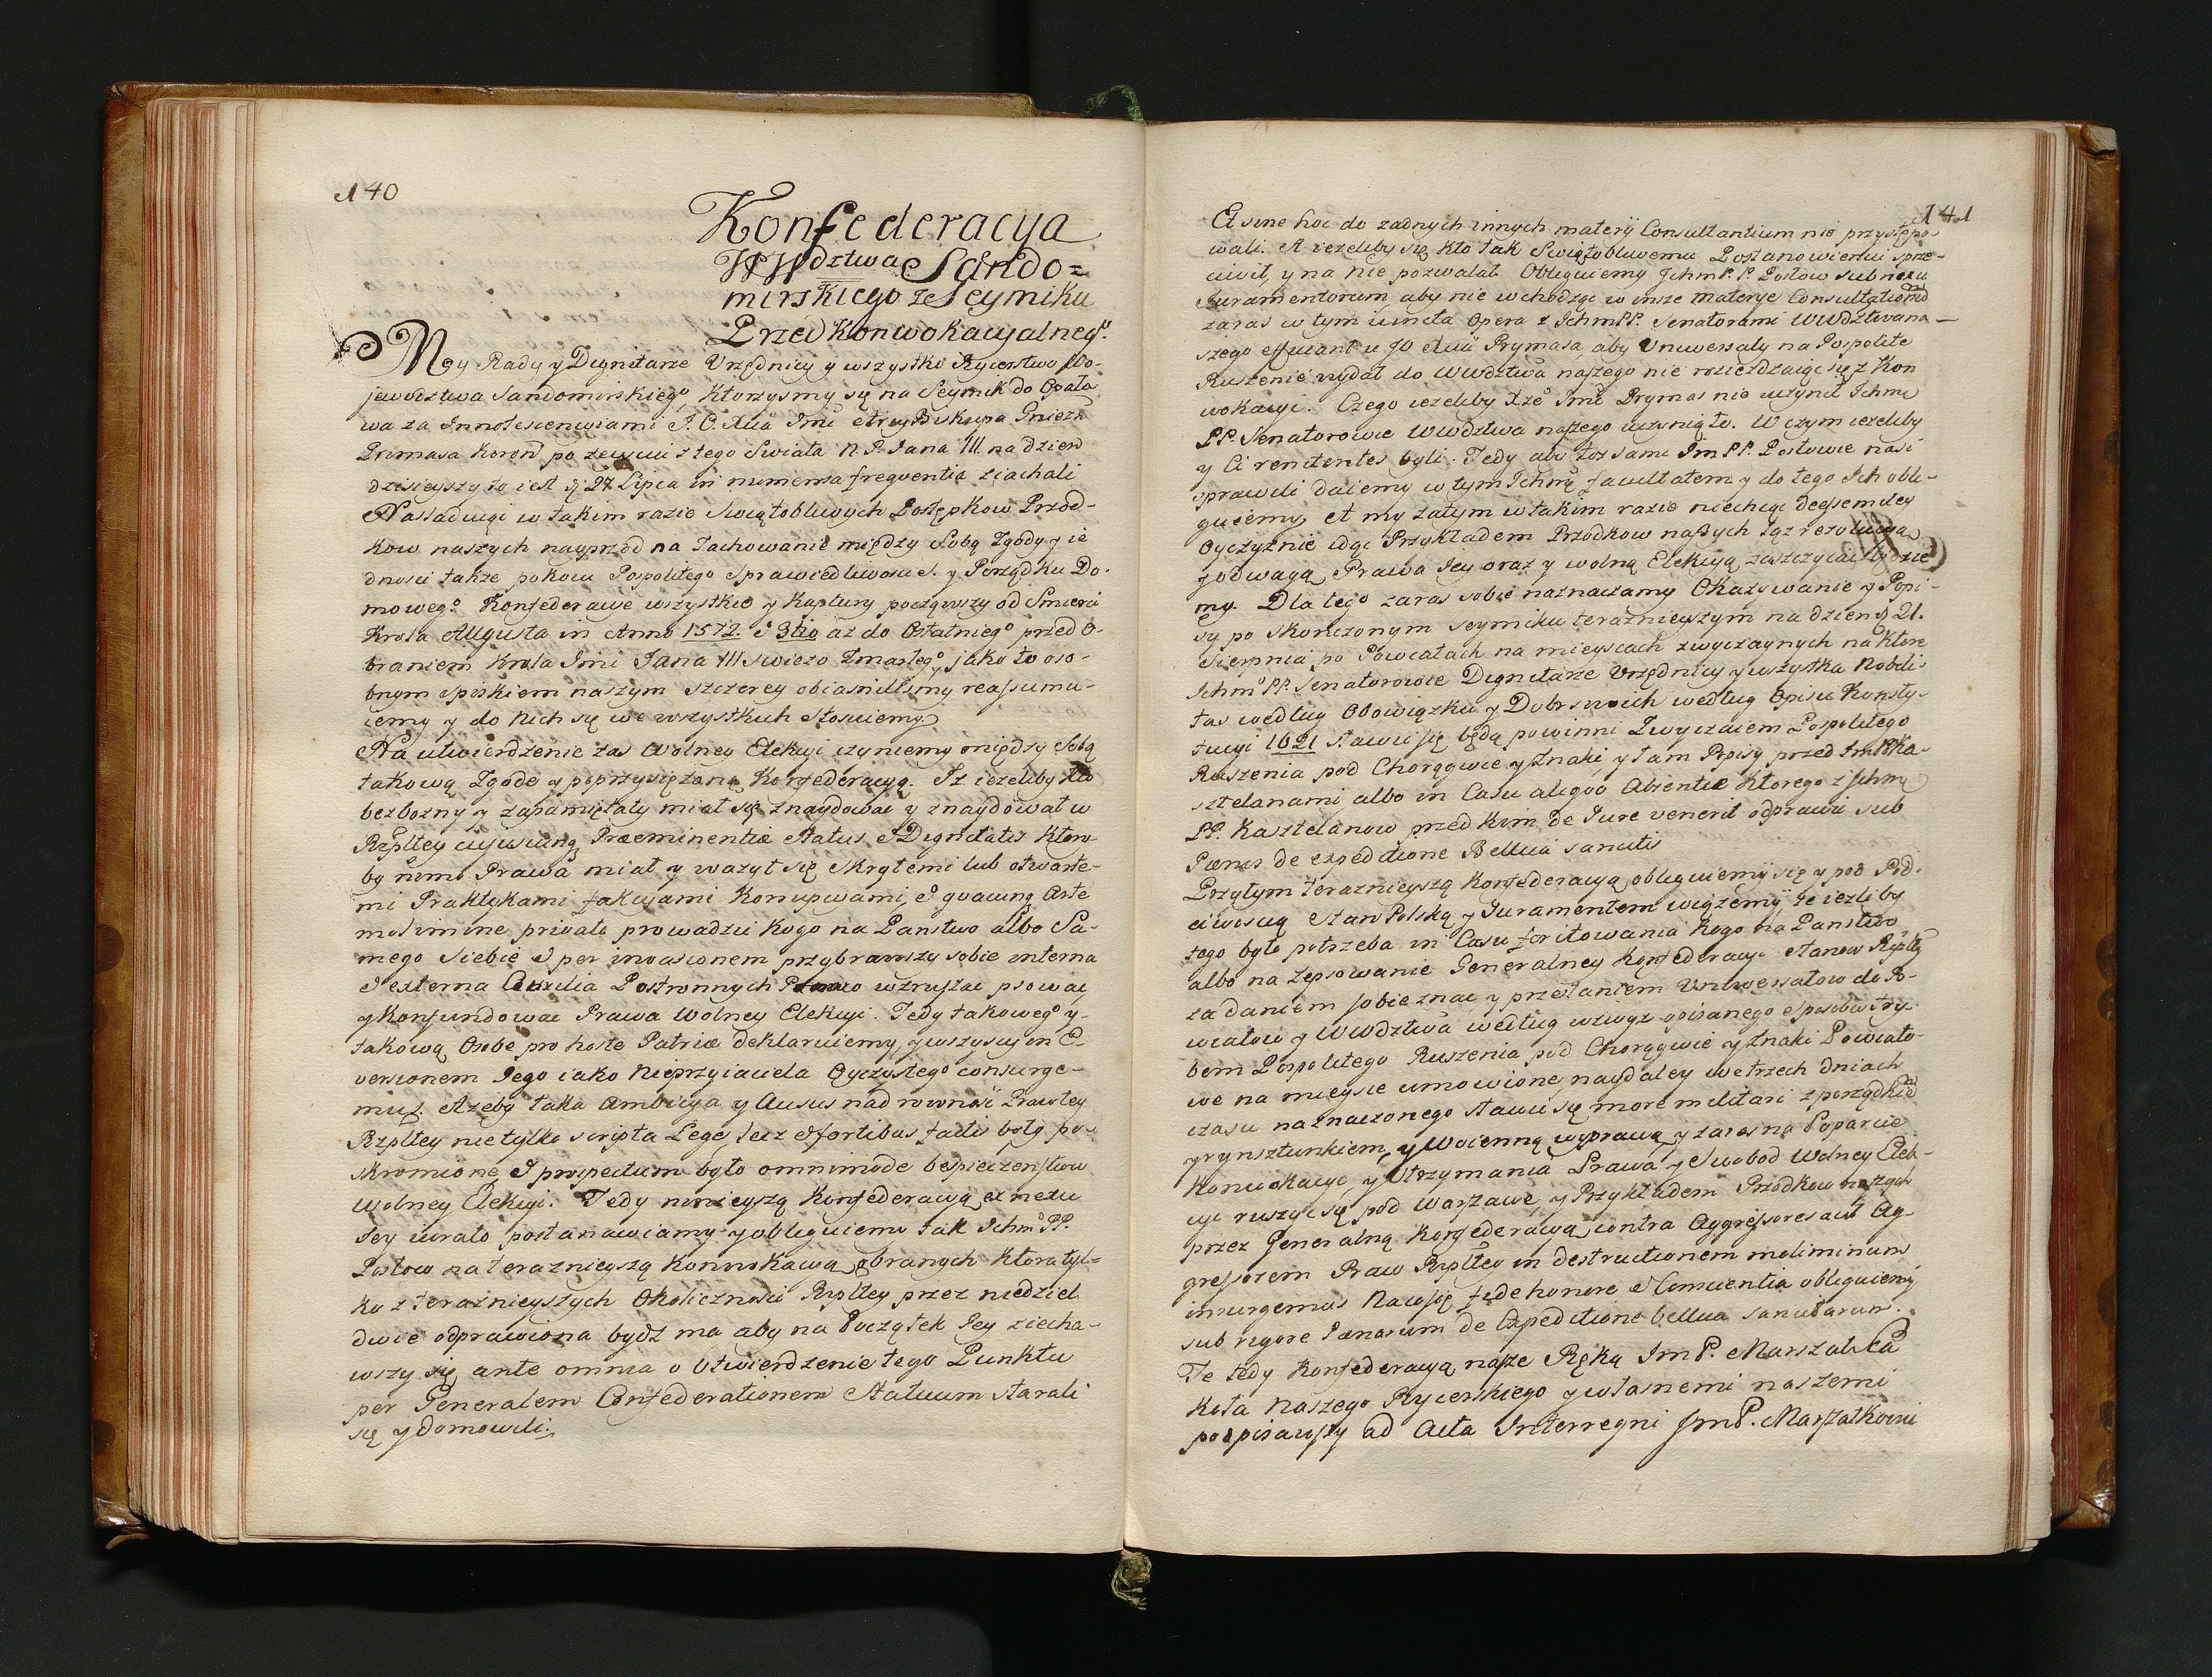 140
Konfederacya
WWdztwa Sando=
mirskiego ze Seymiku
Przed Konwokacyalnego.
My Rady y Dignitarze Urzędnicy y wszystko Rycerstwo Wo-
jewodztwa Sandomirskiego, ktorzysmy się na Seymik do Opato
wa za Innotescencyiami J. O. Xcia Jmci Arcy Biskupa Gniezń
Primasa Koronˢ po zewciu z tego Swiata N. P. Jana III. na dzien
dzisieyszy to iest 27 Lipca in numerosa frequentia ziachali
Nasladuiąc w takim razie Swiątobliwych Postępkow Przod-
kow naszych nayprzod na Zachowanie między Sobą Zgody y ie
dnosci także pokoiu Pospolitego Sprawiedliwosci S. y Porządku Do-
mowego. Konfederacye wszystkie y Kaptury począwszy od Smierci
Krola Augusta in Anno 1572. & 3tio aż do Ostatniego przed o-
braniem Krola Jmci Jana III swiezo Zmarłego, jako to oso-
bnym spiskiem naszym szczerey obiasnilismy reassumu-
iemy y do nich się we wszystkich stosuiemy
Na utwierdzenie zas Wolney Elekcyi czyniemy między Sobą
takową Zgodę y poprzysięzaną Konfederacyą. Jz iezeliby kto
bezbozny y zapamiętały miał się znaydowac y znaydował w
Rzpltey cuyuscunq Præeminentiæ Status & Dignitatis ktory
by nimo Prawa miał y wazył się Skrytemi lub otwarte-
mi Praktykami fakcyami Korrupcyami, & quacunq Arte
molimine privato prowadzic Kogo na Panstwo albo Sa-
mego Siebie & per invasionem przybrawszy sobie interna
& externa Auxilia Postronnych wzruszac psowac
y Konfundowac Prawa Wolney Elekcyi. Tedy takowego y-
takową Osobę pro hoste Patriæ deklaruiemy, y wszyscy in E-
versionem Jego iako Nieprzyiaciela Oyczystego consurge-
mus. Azeby taka Ambicya y Ausus nad rownosc Prawtey
Rzpltey nie tylko scripta Lege, lecz & fortibus factis była po-
skromiona, & prospectum było omnimode bespieczenstwu
Wolney Elekcyi. Tedy ninieyszą Konfederacyą ex nexu
Jey iurato postanawiamy y obliguiemy tak Jchmº PP.
Posłow na terażnieyszą Konwokacyą obranych ktora tyl-
ko z teraznieyszych Okolicznosci Rzpltey przez niedziel
dwie odprawiona bydz ma aby na Początek Jey ziecha-
wszy się ante omnia o Utwierdzenie tego Punktu
per Generalem Confederationem Statuum starali
się y domowili.
141
Et sine hoc do żadnych innych materij Consultantium nie przystępo-
wali. A iezeliby się kto tak Swiątobliwemu Postanowieniu sprze-
ciwił, y na nie pozwalał Obliguiemy Jchm P. P. Posłow sub nexu
Juramentorum, aby nie wchodząc w insze materye Consultationū
zaras w tym iuncta Opera z Jchm PP. Senatorami WWdztwana-
szego efficiant u JO Xcia Prymasa, aby Uniwersały na Pospolite
Ruszenie wydał do WWdztwa naszego nie rozieżdzaiąc się z Kon
wokacyi. Czego iezeliby Xże Jmć Prymas nie uczynił Jchmć
PP. Senatorowie WWdztwa naszego uczynią to. W czym iezeliby
y Ci renitentes byli. Tedy aby toz sami Jm PP. Posłowie nasi
sprawili daiemy w tym Jchmę facultatem y do tego Jch obli-
guiemy, et my zatym w takim razie niechcąc deessemdey
Oyczyznie idąc Przykładem Przodkow naszych tąz rezolucyą
y odwagą, Prawa Jey oraz y wolną Elekcyą zaszczycac będzie
my. Dla tego zaras sobie naznaczamy Okazowanie y Popi-
sy po skonczonym seymiku teraznieyszym na dzien 21.
Sierpnia po Powiatach na mieyscach zwyczaynych na ktore
Jchmº PP. Senatorowie Dignitarze Urzędnicy y wszystka Nobili-
tas według Obowiązku y Dobr swoich według Opisu Konsty-
tucyi 1621 stawic się będą powinni Zwyczaiem Pospolitego
Ruszenia pod Chorągwie y Znaki, y tam Popisy przed Jm PPKa-
sztelanami albo in Casu aliquo Absentiæ ktorego z Jchmę
PP. Kasztelanow przed kim de Jure venerit odprawic sub
Pænis de expeditione Bellica sancitis
Przytym teraznieyszą Konfederacyą obliguiemy się y pod Pod.
ciwoscią Stanu Polską y Juramentem wiązemy że iezliby
tego było potrzeba in Casu foritowania kogo na Panstwo
albo na Zepsowanie Generalney Konfederacyi Stanow Rzpltey
za daniem sobie znac y przesłaniem Uniwersałow do Po-
wiatow y WWdztwa według wzwyz opisanego sposobu try-
bem Pospolitego Ruszenia pod Chorągwie y Znaki Powiato-
we na mieysce umowione, naydaley we trzech dniach
czasu naznaczonego stawic się more militari z porządkiē
y rynsztunkiem, y Woienną wyprawą, y zaras na Poparcie
Konwokacyi, y Utrzymania Prawa y Swobod Wolney Elek-
cyi ruszyc się pod Warszawę, y Przykładem Przodkow naszych
przez Generalną Konfederacyą contra Aggressores aut Ag-
gressorem Praw Rzpltey in destructionem moliminum
insurgemus Naco się fide honore & Conscientia obliguiemy
sub rigore Pœnarum de Expeditione bellica sancitarum.
Te tedy Konfederacyą nasze Ręką Jm P. Marszałka
Koła Naszego Rycerskiego y własnemi naszemi
podpisawszy ad Acta Interregni Jm P. Marszałkowi